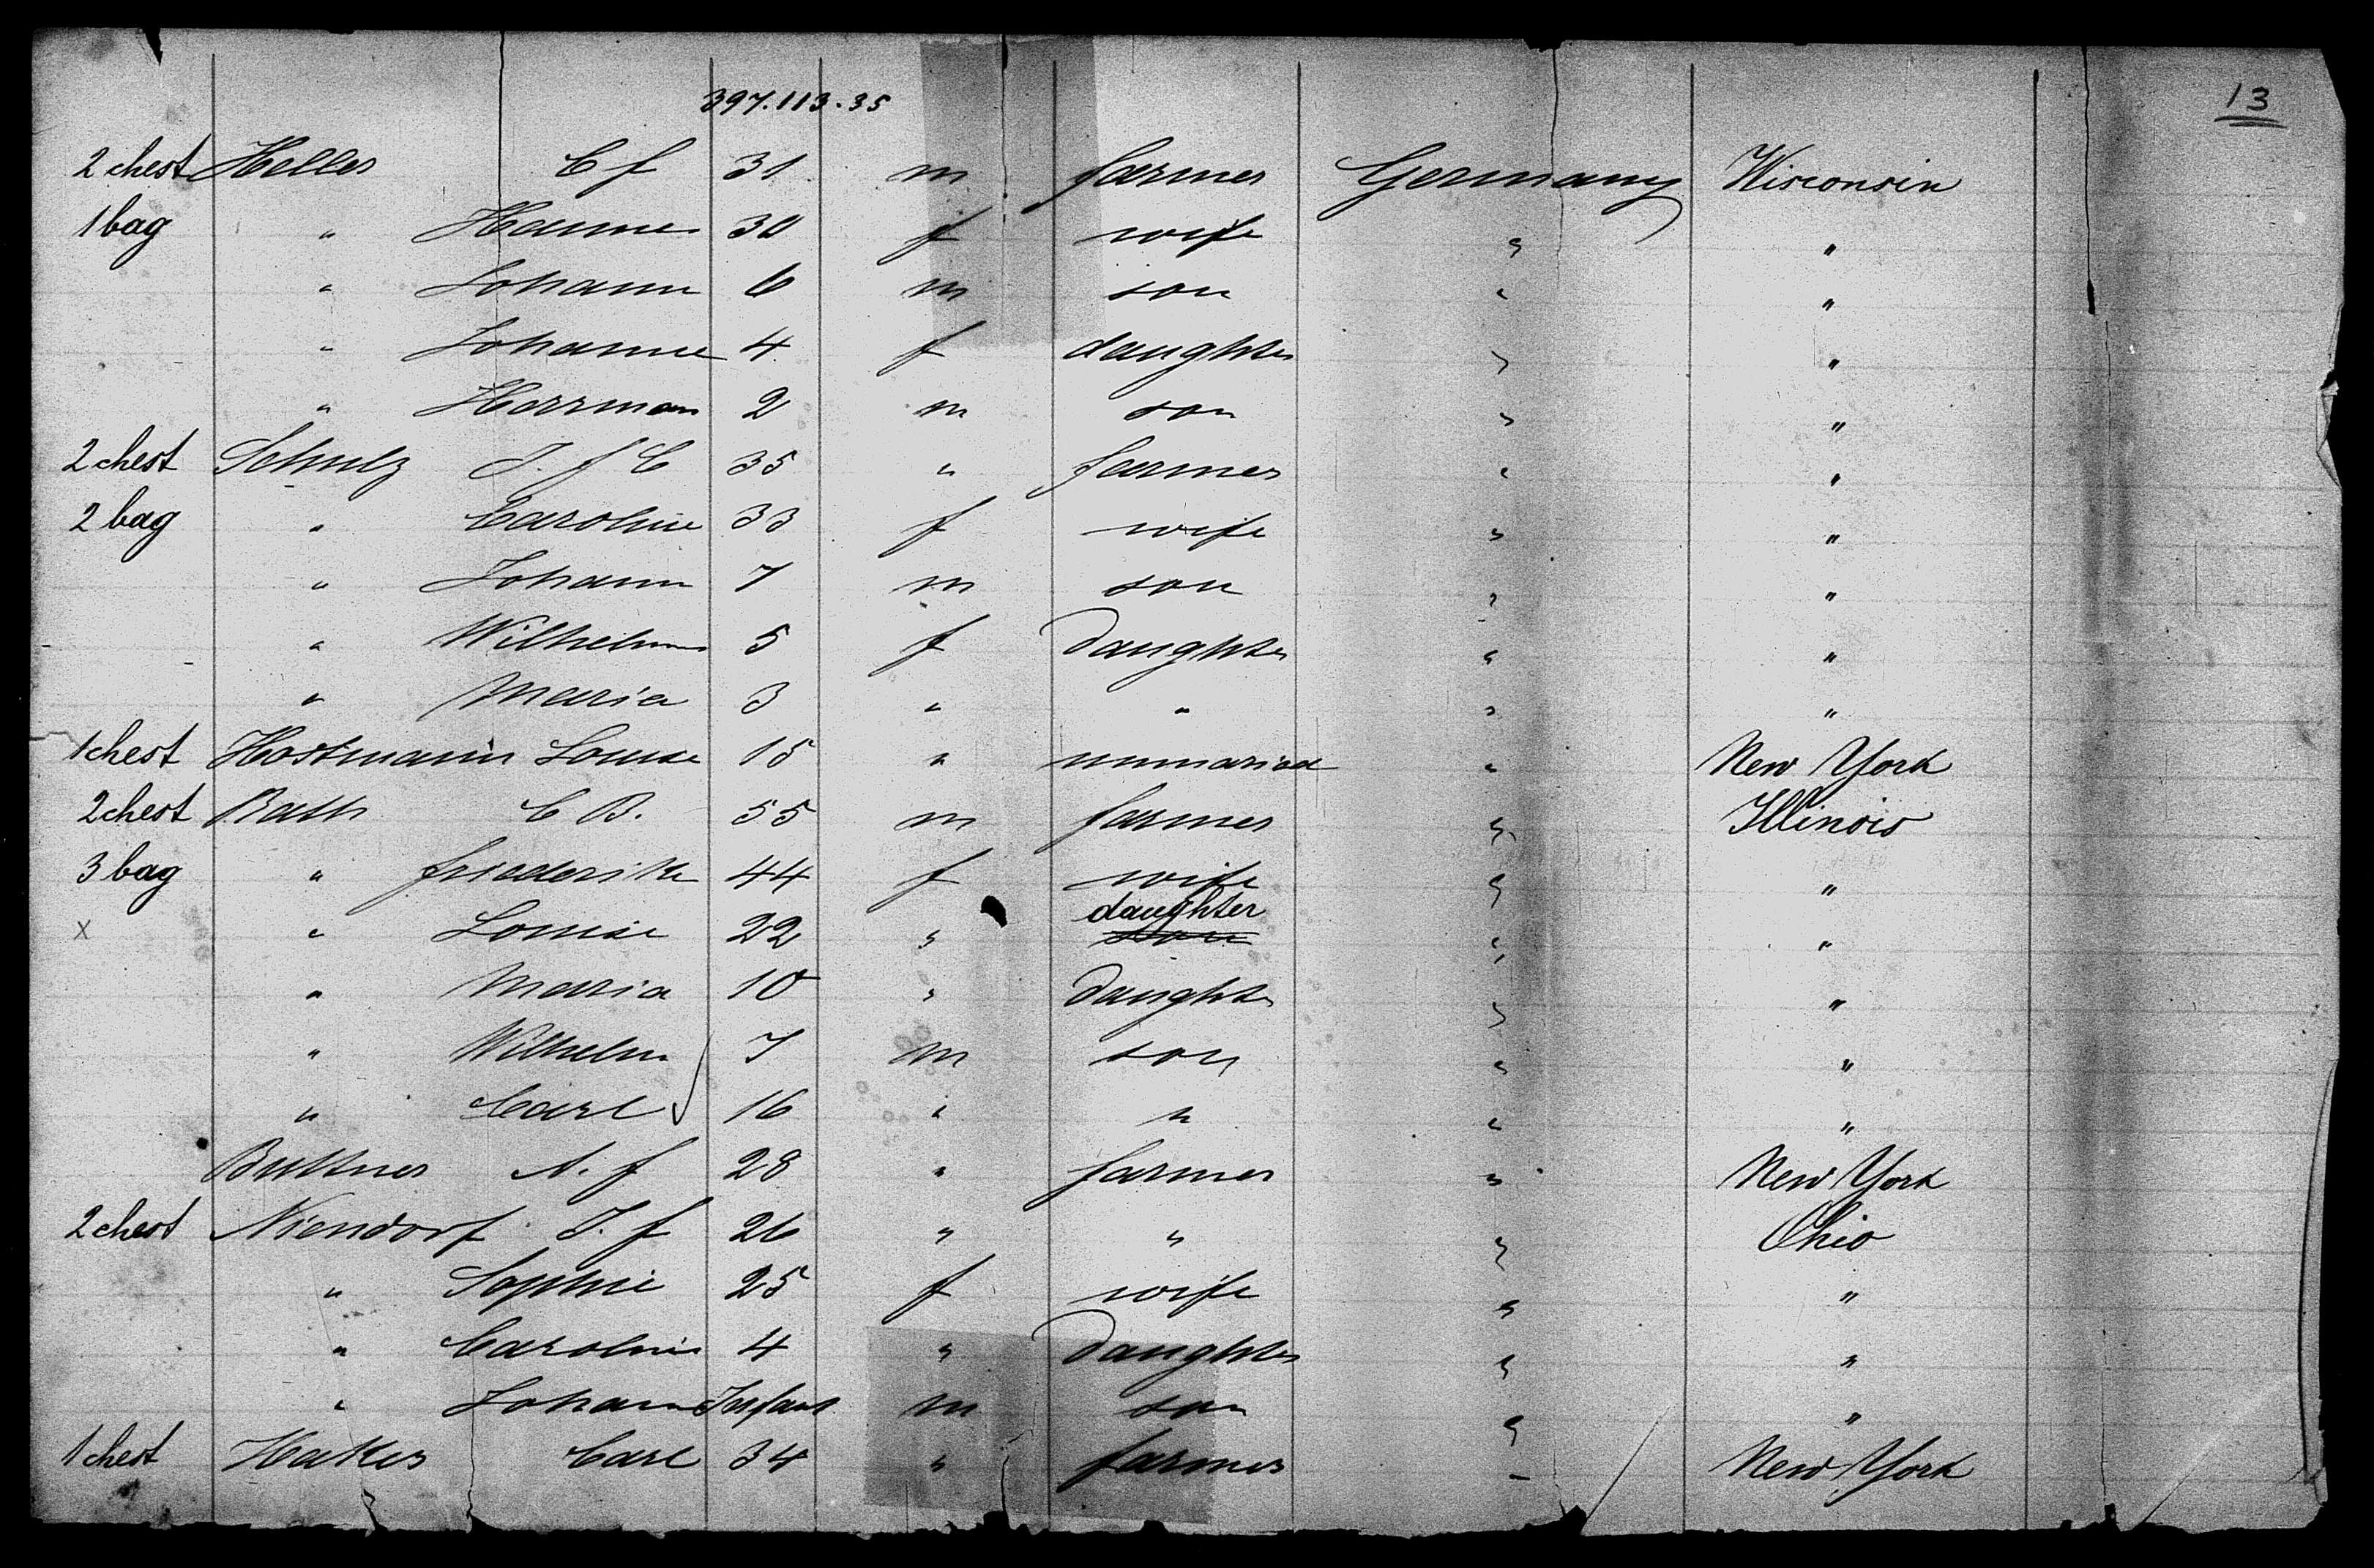 397.113.35
13
2 chest Heller C f 31 m farmer Germany Wisconsin
1 bag " Hanne 30 f wife " "
" Johann 6 m son " "
" Johanne 4 f daughter " "
" Herrman 2 m son " "
2 chest Schulz J. f C 35 " farmer " "
2 bag " Caroline 33 f wife " "
" Johann 7 m son " "
" Wilhelm 5 f Daughter " "
" Maria 3 " " " "
1 chest Hostmann Louise 15 " unmaried " New York
2 chest Bath C B. 55 m farmer " Illinois
3 bag " friederike 44 f wife " "
x " Louise 22 " daughter son " "
" Maria 10 " Daughter " "
" Wilhelm 7 m son " "
" Carl 16 " " " "
Buttner A. f 28 " farmer " New York
2 chest Niendorf J. f 26 " " " Ohio
" Sophie 25 f wife " "
" Caroline 4 " Daughter " "
" Johann Infant m son " "
1 chest Haker Carl 34 " farmer " New York